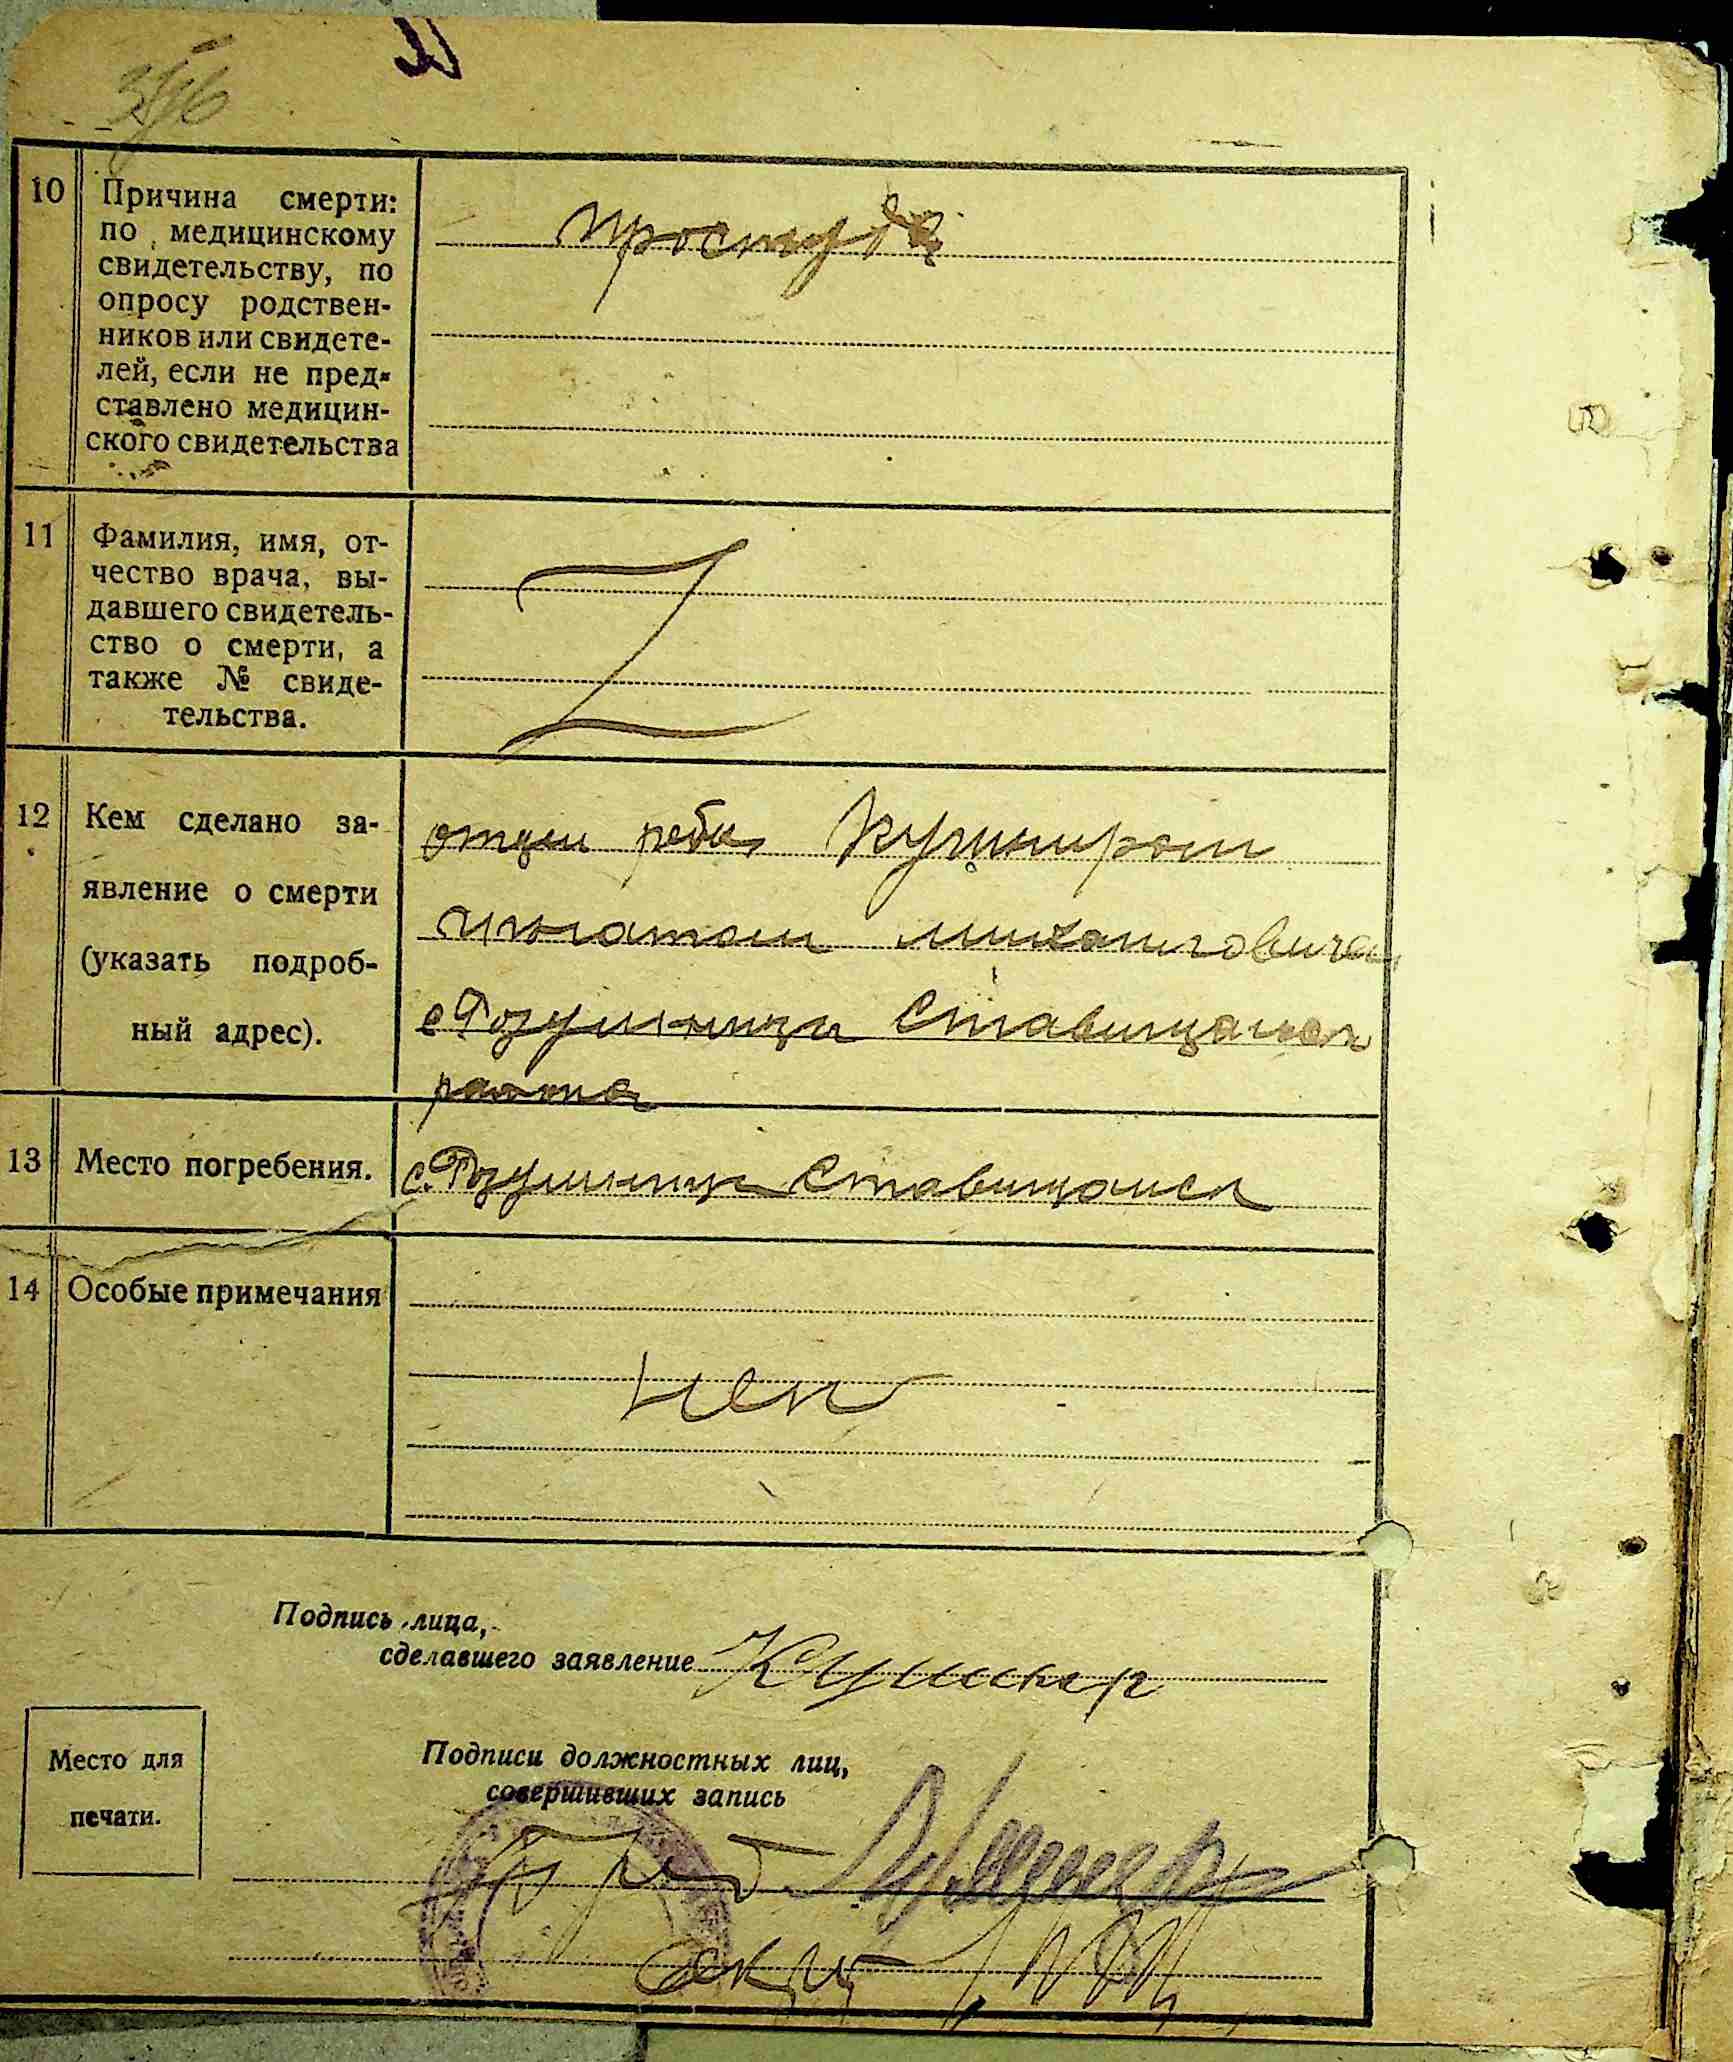 10 Причина смерти:
по медицинскому
свидетельству, по
опросу родствен-
ников или свидете-
лей, если не пред-
ставлено медицин-
ского свидетельства
простуда
11 Фамилия, имя, от-
чество врача, вы-
давшего свидетель-
ство о смерти, а
также № свиде-
тельства.
Z
12 Кем сделано за-
явление о смерти
(указать подроб-
ный адрес).
отцем ребен Кушниром
Игнатом Михайловича
с Розумници Ставищанск
района
13 Место погребения.
с. Розумници Ставищанск
14 Особые примечания
нет
Подпись лица,
сделавшего заявление Кушнир
Место для
печати.
Подписи должностных лиц,
совершивших запись
Секр